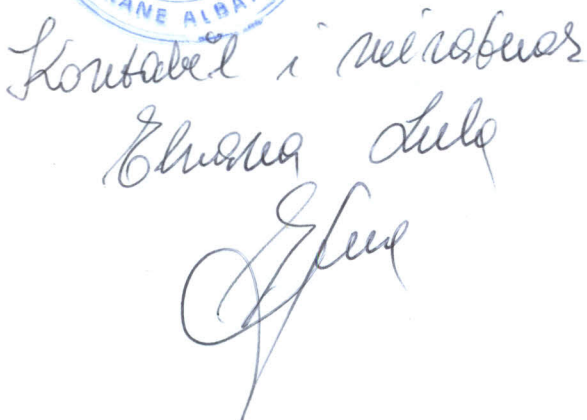 ANE ALBA
Kontabël i miratuar
Elvana Lula